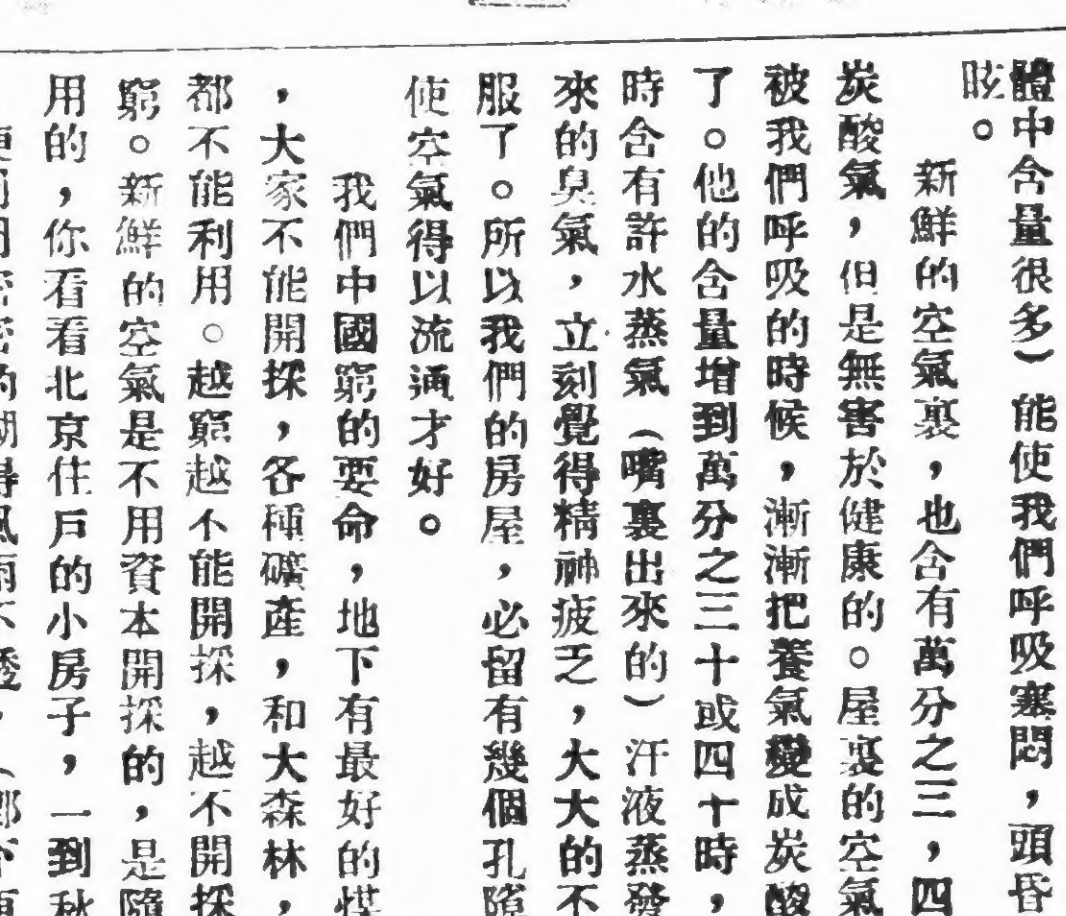 體中含量很多）能使我們呼吸塞悶，頭昏
眩。
新鮮的空氣裏，也含有萬分之三，四
炭酸氣，但是無害於健康的。屋裏的空氣
被我們呼吸的時候，漸漸把養氣變成炭酸
了。他的含量增到萬分之三十或四十時，
時含有許水蒸氣（嘴裏出來的）汗液蒸發
來的臭氣，立刻覺得精神疲乏，大大的不
服了。所以我們的房屋，必留有幾個孔隙
使空氣得以流通才好。
我們中國窮的要命，地下有最好的煤
，大家不能開採，各種礦產，和大森林，
都不能利用。越窮越不能開採，越不開採
窮。新鮮的空氣是不用資本開採的，是隨
用的，你看看北京住戶的小房子，一到秋